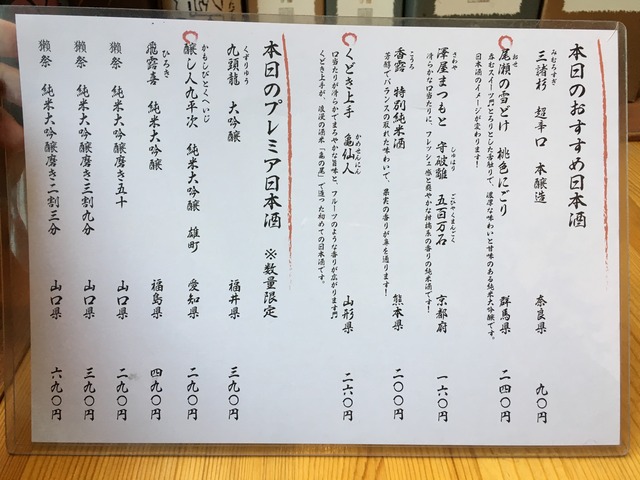 本日のおすすめ日本酒
みむろすぎ
三諸杉　超辛口　本醸造　奈良県　九〇円
おぜ
尾瀬の雪どけ　桃色にごり　群馬県　二四〇円
日本酒のイメージが変わります！
さわや　しゅはり　ごひゃくまんごく
澤屋まつもと　守破離　五百万石　京都府　一六〇円
滑らかな口当たりに、フレッシュ感と爽やかな柑橘系の香りの純米酒です！
こうろ
香露　特別純米酒　熊本県　二〇〇円
芳醇でバランスの取れた味わいで、果実の香りが鼻を通ります！
かめせんにん
くどき上手　亀仙人　山形県　二六〇円
くどき上手が、浪漫の酒米「亀の尾」で造った初めての日本酒です。
本日のプレミア日本酒　※数量限定
くずりゅう
九頭龍　大吟醸　福井県　三九〇円
かもしびとくへいじ
醸し人九平次　純米大吟醸　雄町　愛知県　二九〇円
ひろき
飛露喜　純米大吟醸　福島県　四九〇円
獺祭　純米大吟醸磨き五十　山口県　二九〇円
獺祭　純米大吟醸磨き三割九分　山口県　三九〇円
獺祭　純米大吟醸磨き二割三分　山口県　六九〇円